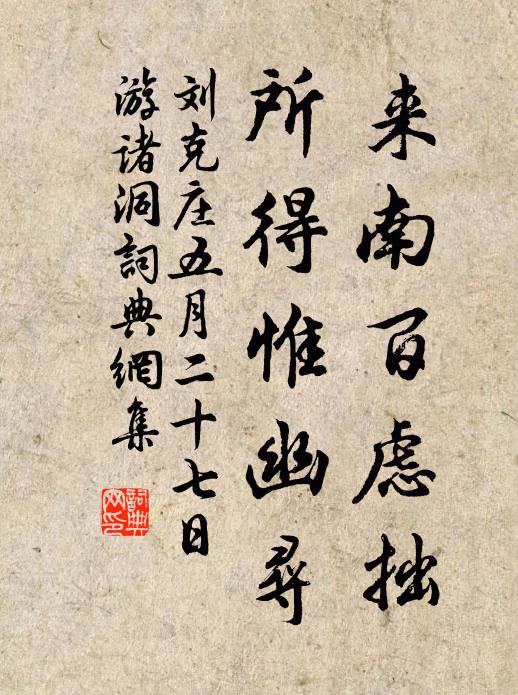 来南百虑拙
所得惟幽尋
刘克庄五月二十七日
游诸洞詞典網集
詞典网印